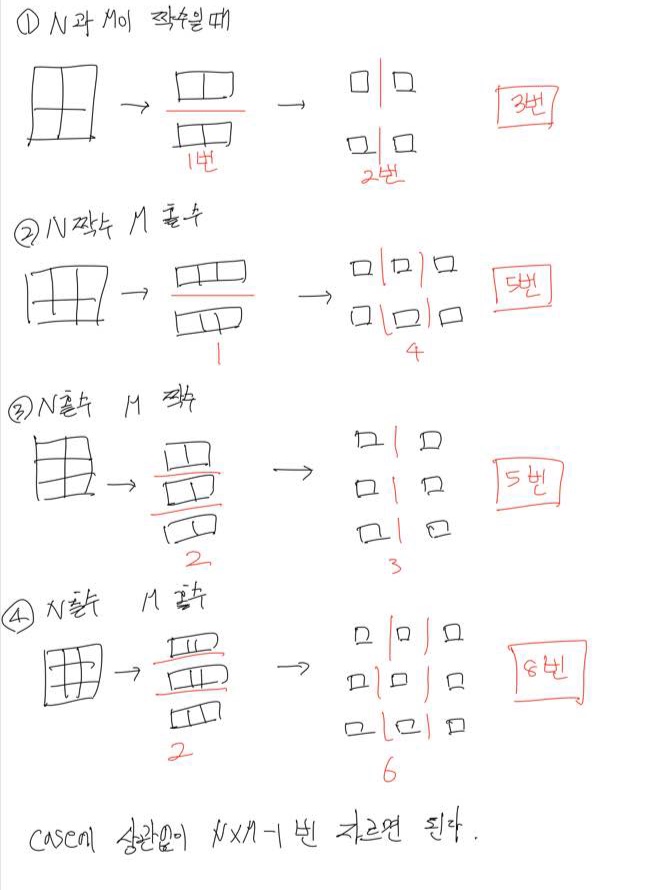 ① N과 M이 짝수일 때
1번
2번
3번
② N짝수 M 홀수
1
4
5번
③ N홀수 M 짝수
2
3
5번
④ N홀수 M 홀수
2
6
8번
case에 상관없이 N×M-1 번 자르면 된다.